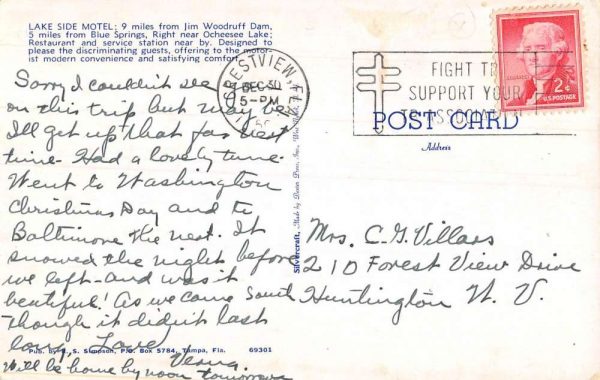 LAKE SIDE MOTEL; 9 miles from Jim Woodruff Dam,
5 miles from Blue Springs, Right near Ocheesee Lake;
Restaurant and service station near by. Designed to
please the discriminating guests, offering to the motor-
ist modern convenience and satisfying comfort.
Sorry I couldn't see
on this trip but may be
I'll get up that far next
time. Had a lovely time
Went to Washington
Christmas Day and to
Baltimore the next. It
snowed the night before
we left - and was it
beautiful! As we came South
though it didn't last
long. Love
Verna
Will be home by noon tomorrow
Pub. by S. Simpson, P.O. Box 5784, Tampa, Fla. 69301
Silvercraft, Made by Dexter Press, Inc.,
CRESTVIEW, FLA
DEC 30
5-PM
FIGHT TB
SUPPORT YOUR
TB ASSOCIATION
2¢
U.S. POSTAGE
POST CARD
Address
Mrs. C. G. Villars
210 Forest View Drive
Huntington W. V.